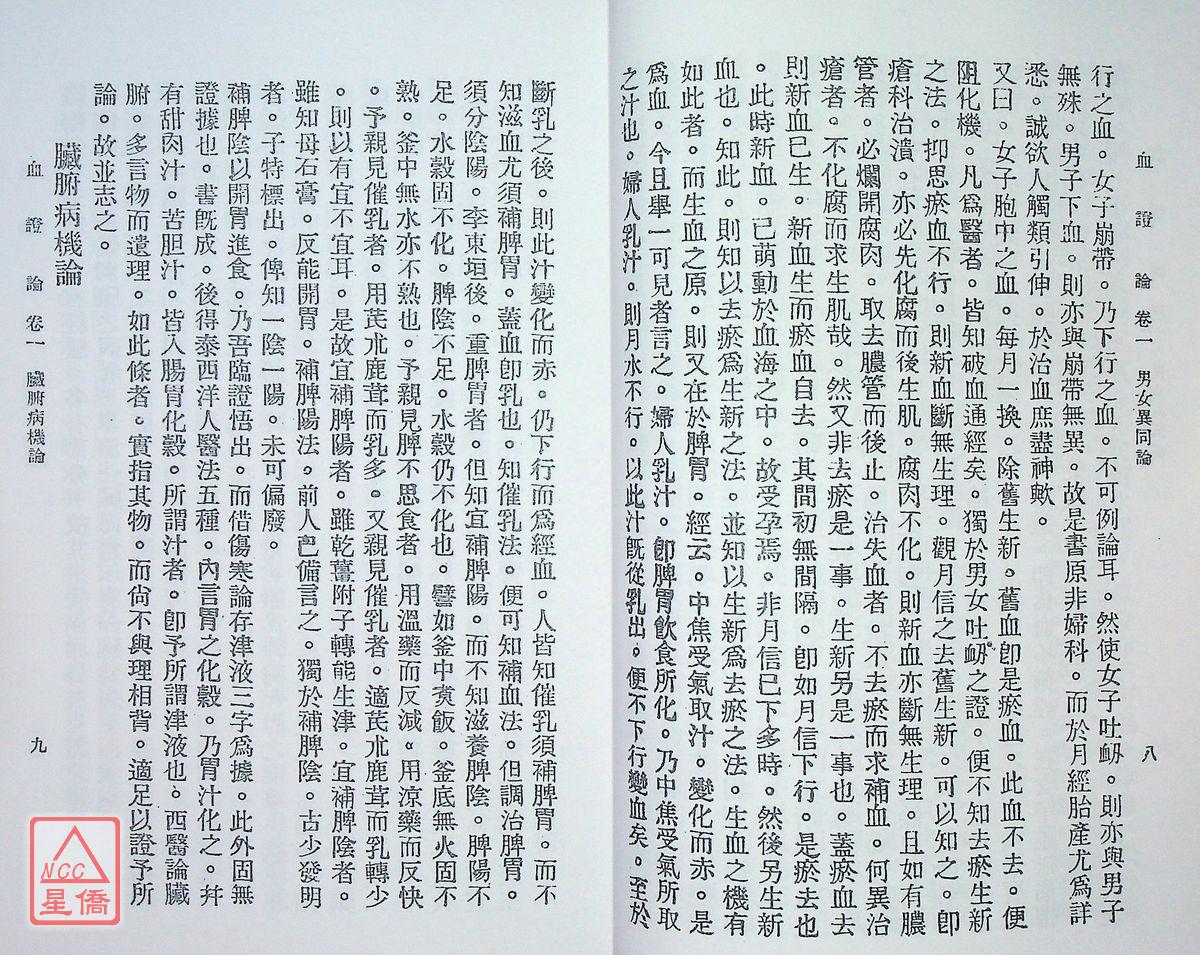 血證論 卷一 男女異同論 八
行之血。女子崩帶。乃下行之血。不可例論耳。然使女子吐衂。則亦與男子
無殊。男子下血。則亦與崩帶無異。故是書原非婦科。而於月經胎產尤爲詳
悉。誠欲人觸類引伸。於治血庶盡神歟。
又曰。女子胞中之血。每月一換。除舊生新。舊血卽是瘀血。此血不去。便
阻化機。凡爲醫者。皆知破血通經矣。獨於男女吐衂之證。便不知去瘀生新
之法。抑思瘀血不行。則新血斷無生理。觀月信之去舊生新。可以知之。卽
瘡科治潰。亦必先化腐而後生肌。腐肉不化。則新血亦斷無生理。且如有膿
管者。必爛開腐肉。取去膿管而後止。治失血者。不去瘀而求補血。何異治
瘡者。不化腐而求生肌哉。然又非去瘀是一事。生新另是一事也。蓋瘀血去
則新血已生。新血生而瘀血自去。其間初無間隔。卽如月信下行。是瘀去也
。此時新血。已萌動於血海之中。故受孕焉。非月信已下多時。然後另生新
血也。知此。則知以去瘀爲生新之法。並知以生新爲去瘀之法。生血之機有
如此者。而生血之原。則又在於脾胃。經云。中焦受氣取汁。變化而赤。是
爲血。今且舉一可見者言之。婦人乳汁。卽脾胃飲食所化。乃中焦受氣所取
之汁也。婦人乳汁。則月水不行。以此汁旣從乳出。便不下行變血矣。至於
斷乳之後。則此汁變化而赤。仍下行而爲經血。人皆知催乳須補脾胃。而不
知滋血尤須補脾胃。蓋血卽乳也。知催乳法。便可知補血法。但調治脾胃。
須分陰陽。李東垣後。重脾胃者。但知宜補脾陽。而不知滋養脾陰。脾陽不
足。水穀固不化。脾陰不足。水穀仍不化也。譬如釜中煑飯。釜底無火固不
熟。釜中無水亦不熟也。予親見脾不思食者。用溫藥而反減。用涼藥而反快
。予親見催乳者。用芪朮鹿茸而乳多。又親見催乳者。適芪朮鹿茸而乳轉少
。則以有宜不宜耳。是故宜補脾陽者。雖乾薑附子轉能生津。宜補脾陰者。
雖知母石膏。反能開胃。補脾陽法。前人已備言之。獨於補脾陰。古少發明
者。子特標出。俾知一陰一陽。未可偏廢。
補脾陰以開胃進食。乃吾臨證悟出。而借傷寒論存津液三字爲據。此外固無
證據也。書旣成。後得泰西洋人醫法五種。內言胃之化穀。乃胃汁化之。幷
有甜肉汁。苦胆汁。皆入腸胃化穀。所謂汁者。卽予所謂津液也。西醫論臟
腑。多言物而遺理。如此條者。實指其物。而尙不與理相背。適足以證予所
論。故並志之。
臟腑病機論
血證論 卷一 臟腑病機論 九
NCC
星僑